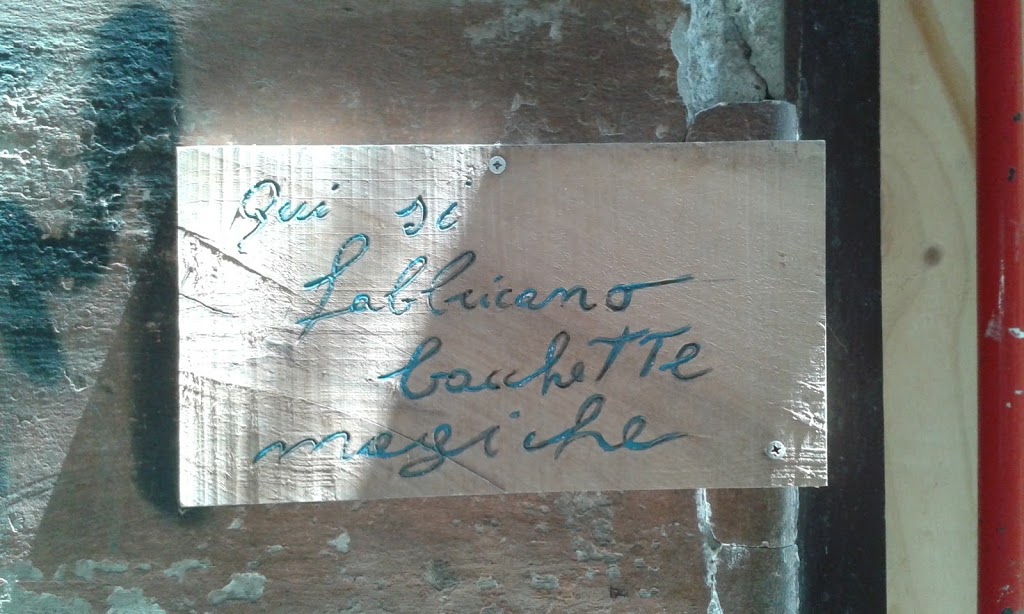 Qui si
fabbricano
bacchette
magiche